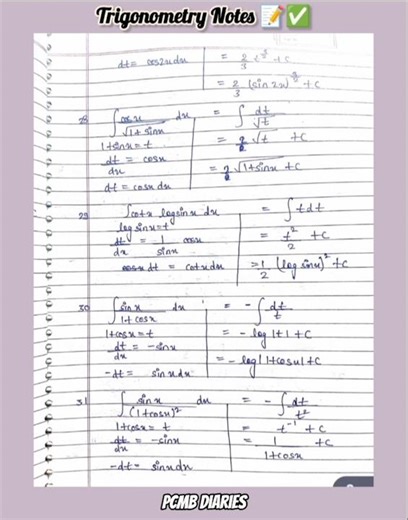 Trigonometry Notes 📝✅
dt = cos2x dx = 2/3 t^(3/2) + c
= 2/3 (sin 2x)^(3/2) + c
28 ∫ cosx/√(1+sinx) dx = ∫ dt/√t
1+sinx = t = 2√t + c
dt/dx = cosx = 2√(1+sinx) + c
dt = cosx dx
29 ∫cotx logsinx dx = ∫t dt
logsinx = t = t²/2 + c
dt/dx = 1/sinx cosx
dt = cotx dx = 1/2 (log sinx)² + c
30 ∫ sinx/(1+cosx) dx = -∫ dt/t
1+cosx = t = - log|t| + c
dt/dx = -sinx = - log|1+cosx| + c
-dt = sinx dx
31 ∫ sinx/(1+cosx)² dx = -∫ dt/t²
1+cosx = t = t⁻¹ + c
dt/dx = -sinx = 1/(1+cosx) + c
-dt = sinx dx
PCMB DIARIES